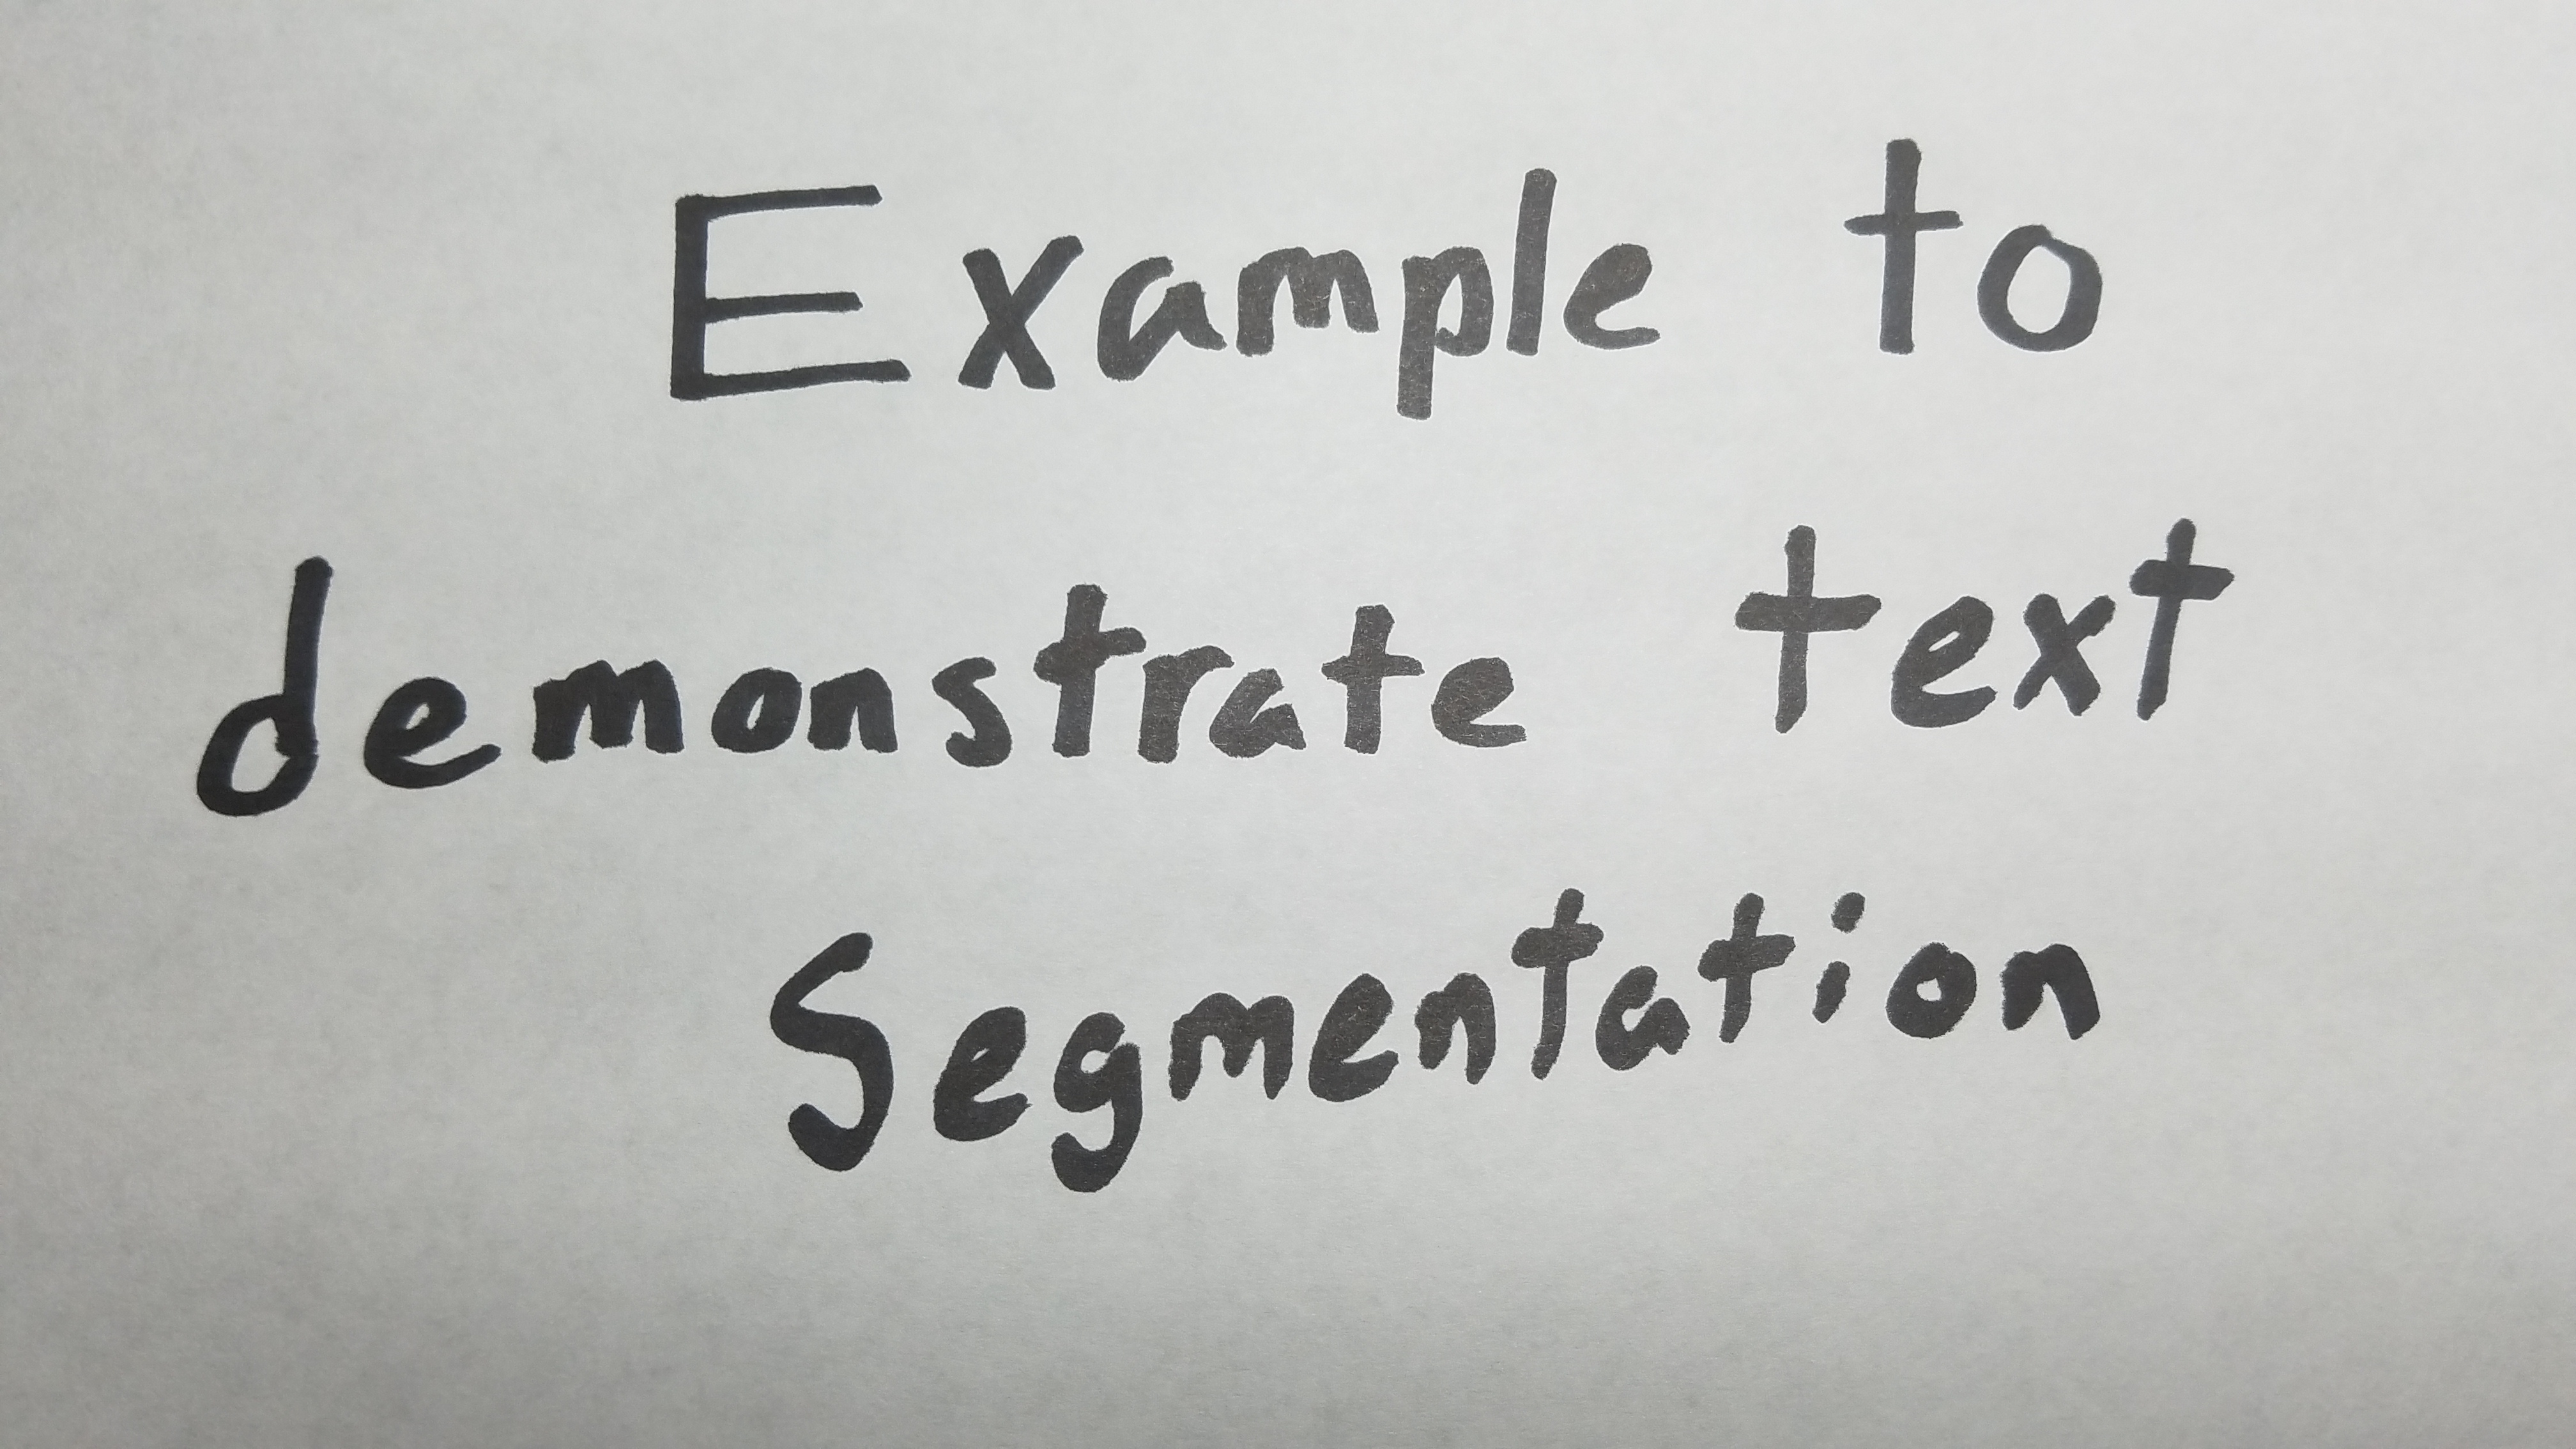 Example to
demonstrate text
Segmentation